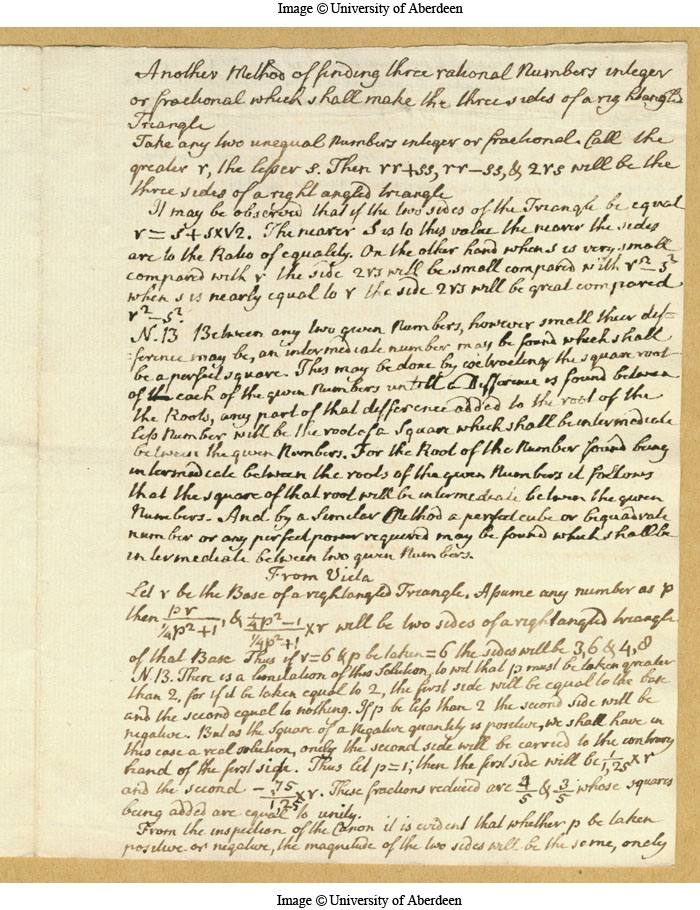 Image © University of Aberdeen
Another Method of finding three rational Numbers integer
or fractional which shall make the three sides of a right angled
Triangle
Take any two unequal Numbers integer or fractional. Call the
greater r, the lesser s. Then rr+ss, rr-ss, & 2rs will be the
three sides of a right angled triangle
It may be observed that if the two sides of the Triangle be equal
r = s + s×√2. The nearer s is to this value the nearer the sides
are to the Ratio of equality. On the other hand when s is very small
compared with r the side 2rs will be small compared with r²-s²
when s is nearly equal to r the side 2rs will be great compared
r²-s².
N.B Between any two given Numbers, however small their dif-
=ference may be, an intermediate number may be found which shall
be a perfect square. This may be done by extracting the square root
of each of the given Numbers untill a Difference is found between
the Roots, any part of that difference added to the root of the
less Number will be the root of a Square which shall be intermediate
between the given Numbers. For the Root of the Number found being
intermediate between the roots of the given Numbers it follows
that the square of that root will be intermediate between the given
Numbers. And by a Similar Method a perfect cube or biquadrate
number or any perfect power required may be found which shall be
intermediate between two given Numbers.
From Vieta
Let r be the Base of a rightangled Triangle. Assume any number as p
then pr/¼p²+1, & ¼p²-1/¼p²+1 × r will be two sides of a rightangled triangle
of that Base Thus if r=6 & p be taken = 6 the sides will be 3,6 & 4,8
N.B. There is a limitation of this Solution, to wit that p must be taken greater
than 2, for if it be taken equal to 2, the first side will be equal to the base
and the second equal to nothing. If p be less than 2 the second side will be
negative. But as the Square of a Negative quantity is positive, we shall have in
this case a real solution, onely the second side will be carried to the contrary
hand of the first side. Thus let p=1, then the first side will be 1/1,25 × r
and the second - ,75/1,25 × r. These fractions reduced are 4/5 & 3/5 whose squares
being added are equal to unity.
From the inspection of the Canon it is evident that whether p be taken
positive or negative, the magnitude of the two sides will be the same, onely
Image © University of Aberdeen